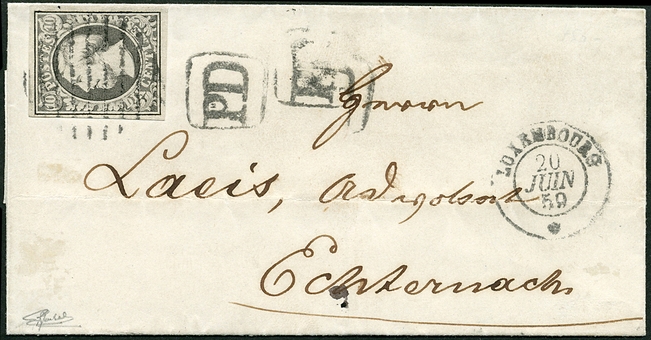 10 POSTES 10
UN SILBERG
PD
PD
Herrn
Laeis, Advokat
Echternach
LUXEMBOURG
20
JUIN
59